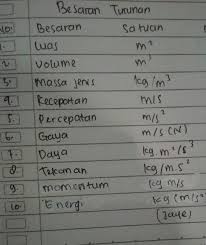 Besaran Turunan
No. Besaran Satuan
1. Luas m²
2. Volume m³
3. Massa jenis kg/m³
4. Kecepatan m/s
5. Percepatan m/s²
6. Gaya m/s (N)
7. Daya kg.m²/s³
8. Tekanan kg/m.s²
9. momentum kg m/s
10. Energi kg (m/s²
(Joule)